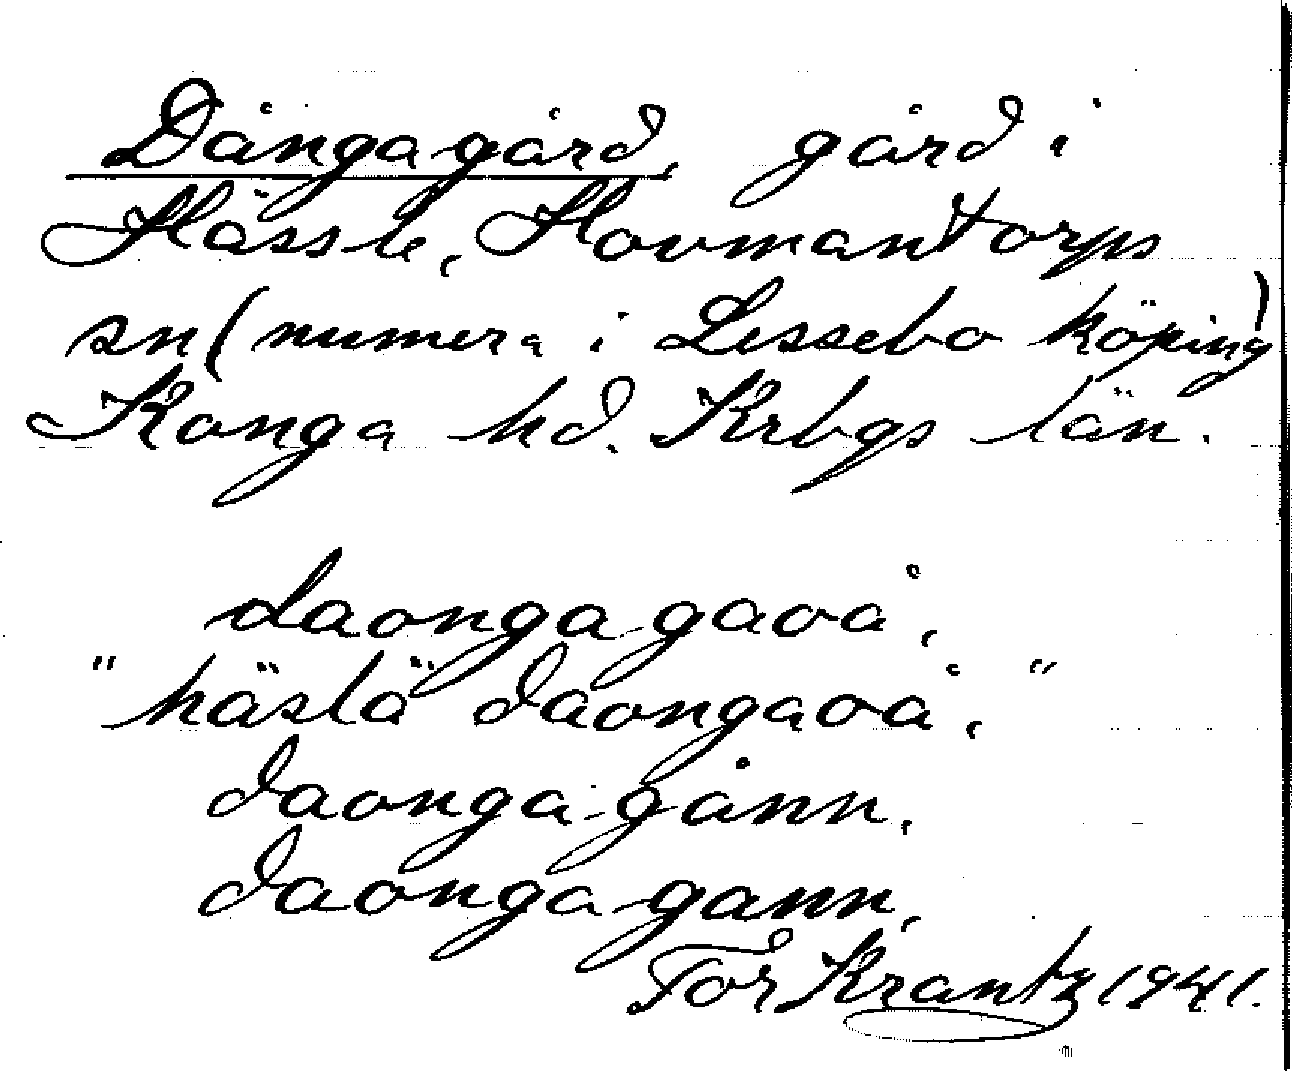 Dångagård, gård i
Hässle, Hovmantorps
sn (numera i Lessebo köping)
Konga hd. Krbgs län.
daongagaoå,
"häslä daongaoå,"
daonga-gånn,
daonga gann,
Tor Krantz 1941.